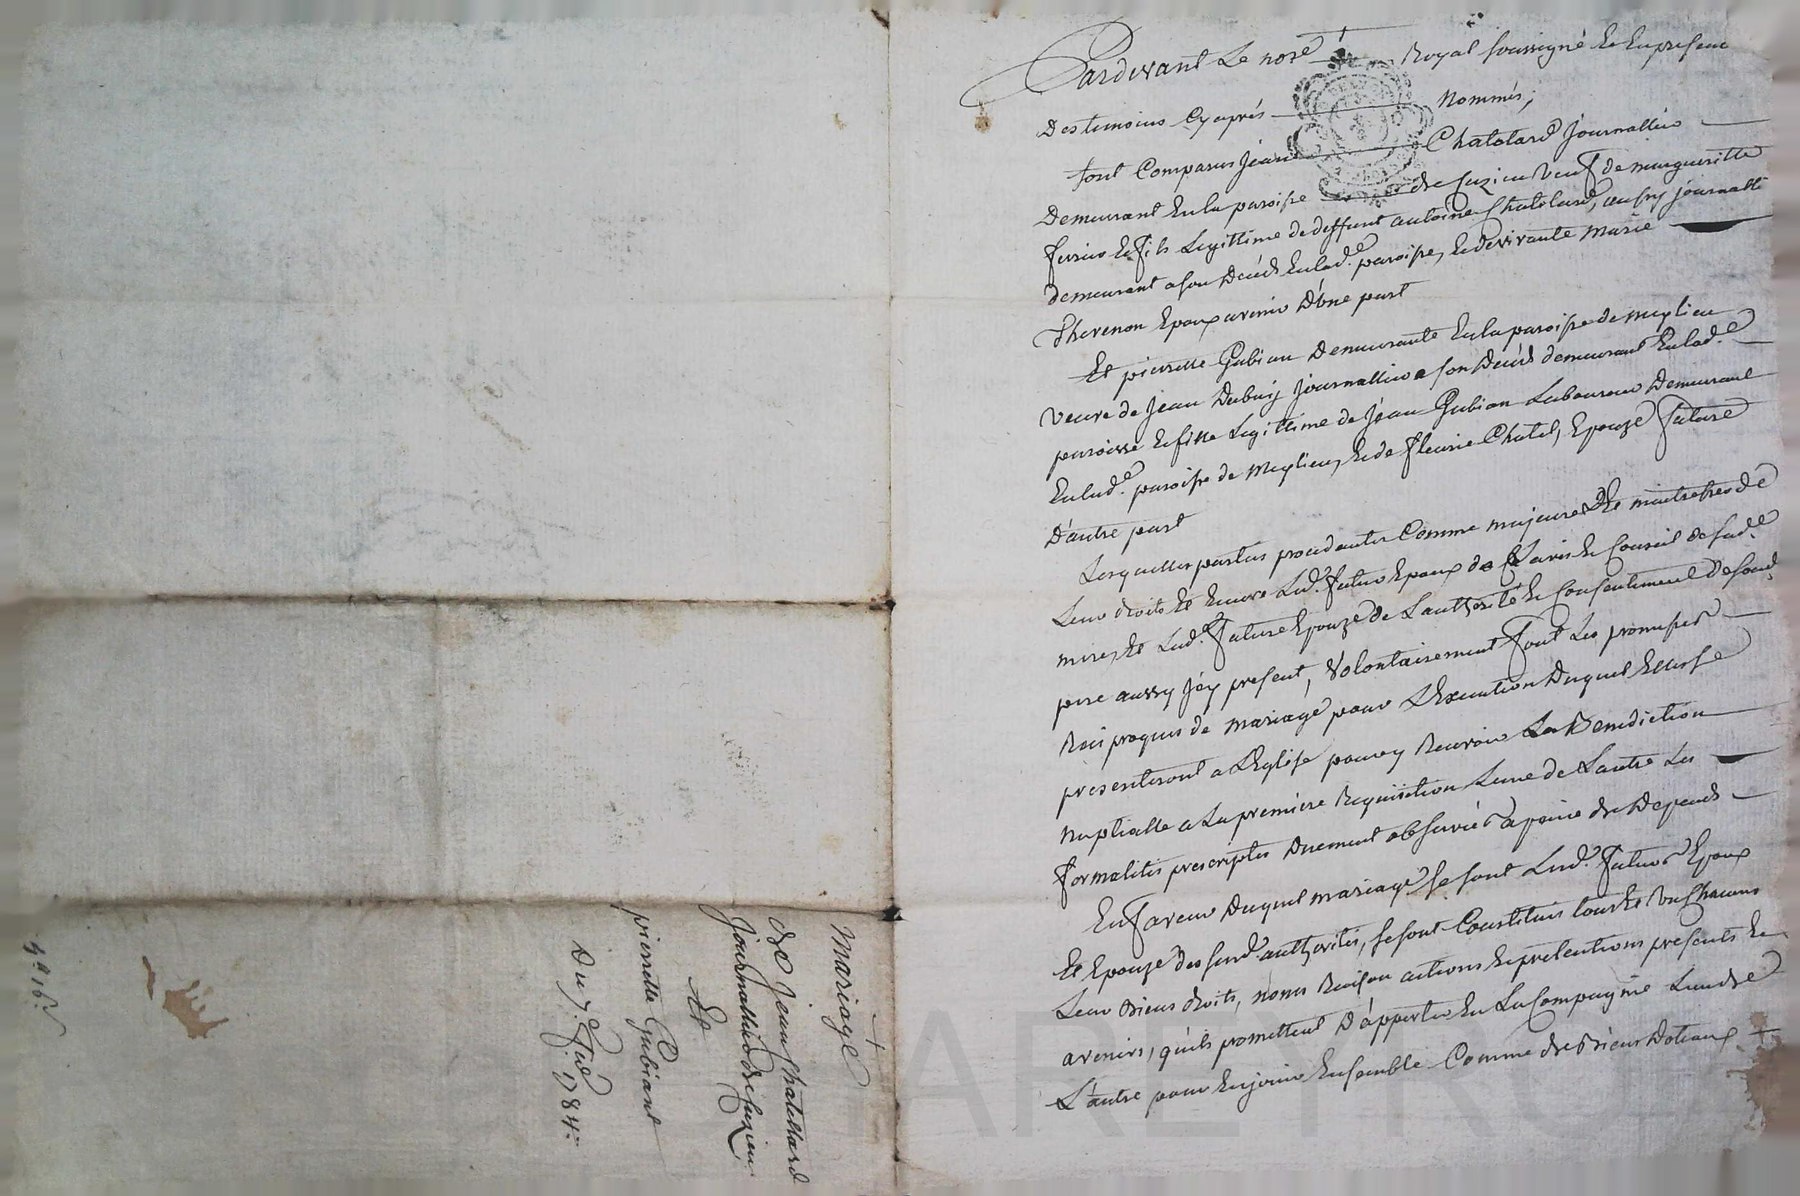 Pardevant Le nore Royal soussigné Et En presence
Des temoins Cy aprés Nommés,
sont Comparus Jean Chatelard Journallier
Demeurant En la paroisse de Cuzieu Veuf de margueritte
ferrier Et fils Legittime de deffunt antoine Chatelard, aussy Journallier
demeurant a son Décéds En lad.e paroisse, Et de vivante Marie
Thevenon Epoux avenir D'une part
Et pierrette Gubian Demeurante En la paroisse de Meylieu
veuve de Jean Dubuy Journallier a son Décéds demeurant En lad.e
paroisse Et fille Legittime de Jean Gubian Laboureur Demeurant
En lad.e paroisse de Meylieu, Et de fleurie Chatel, Epouze future
D'autre part
Lesquelles parties procedantes Comme majeures Et maitresses de
Leur droits Et Encore Led. futur Epoux de L'avis Et Conseil de sad.e
mere, Et Lad.e future Epouze de L'authorité Et Consentement de sond.
pere aussy Jcy present, Volontairement font Les promesses
Reciproques de mariage pour L'Execution Duquel Elles se
presenteront a L'Eglise pour y Recevoir La Benediction
Nuptialle a La premiere Requisition L'une de L'autre Les
formalités prescriptes Duement observées a peine de Depends
En faveur Duquel mariage se sont Lesd. futurs Epoux
Et Epouze des susd. authorités, se sont Constitués tous Et Un Chacuns
Leur Biens droits, noms Raison actions Et pretentions presents Et
avenirs, qu'ils promettent D'apporter En La Compagnie L'un de
L'autre pour En jouir Ensemble Comme de Biens Dotaux
Mariage
de Jean Chatellard
Journallier de Cuzieu
Et
pierrette Gubiant
Du 7.e fev. 1784
AREYRO